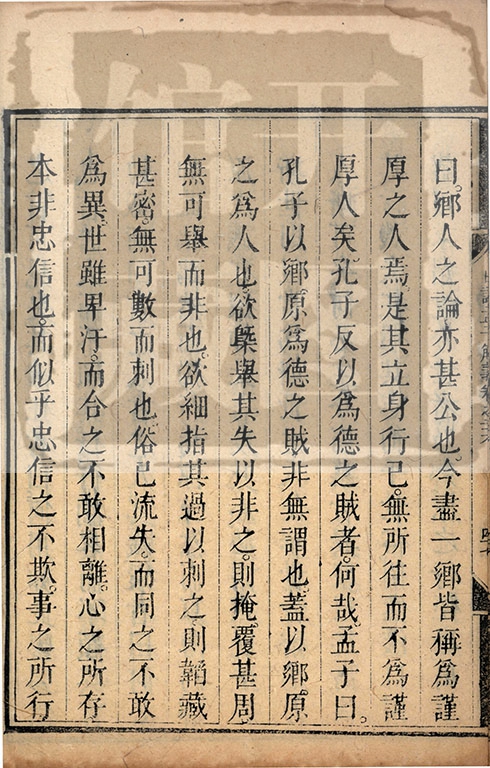 曰。鄉人之論亦甚公也。今盡一鄉皆稱爲謹
厚之人焉。是其立身行己。無所往而不爲謹
厚人矣。孔子反以爲德之賊者。何哉。孟子曰。
孔子以鄉。原爲德之賊非無謂也。蓋以鄉。原
之爲人也欲槩舉其失以非之。則掩。覆甚周
無可舉而非也。欲細指其過以刺之。則韜藏
甚密。無可數而刺也俗已流失。而同之不敢
爲異世雖卑汙。而合之不敢相離。心之所存
本非忠信也。而似乎忠信之不欺。事之所行